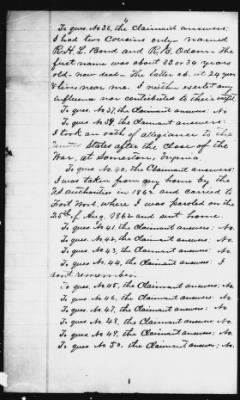 4
To ques. No 36, the claimant answers;
I had two Cousins only named
R.H.L. Bond and R.B. Odom. The
first name was about 33 or 34 years
old - now dead - The latter ab. at 24 years
& lives near me. I neither exerted any
influence nor contributed to their outfit.
To ques. No 37, the claimant answers: No.
To ques. No 39, the claimant answers:
I took an oath of allegiance to the
United States after the close of the
War, at Somerton, Virginia.
To ques. No. 40, the Claimant answers:
I was taken from my home by the
Fed authorities in 1862 and carried to
Fort Wool, where I was paroled on the
25th of Aug. 1862 and sent home.
To ques. No 41, the Claimant answers; No.
To ques. No 42, the Claimant answers: No.
To ques. No 43, the Claimant answers: No.
To ques. No. 44, the Claimant answers: I
don't remember.
To ques No. 45, the Claimant answers: No.
To ques No 46, the Claimant answers: No.
To ques. No 47, the Claimant answers: No.
To ques. No 48, the Claimant answers: No
To ques No. 49, the Claimant answers; No.
To ques No 50, the Claimant answers; No.